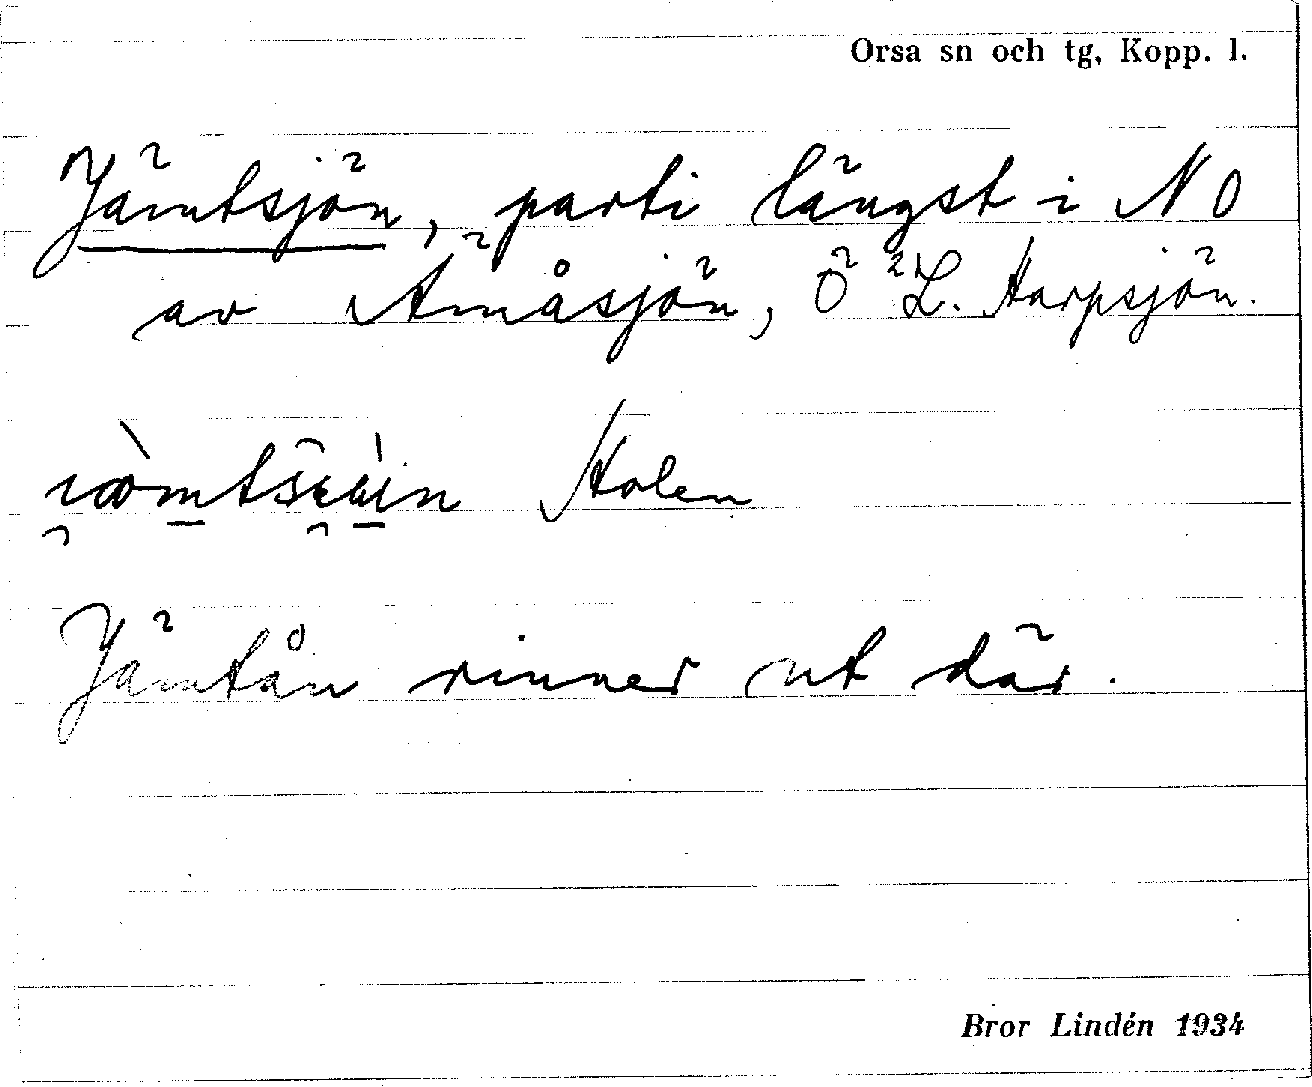 Orsa sn och tg, Kopp. l.
Jämtsjön, parti längst i NO
av Ämåsjön, Ö L. Harpsjön.
Holen
Jämtån rinner ut där.
Bror Lindén 1934